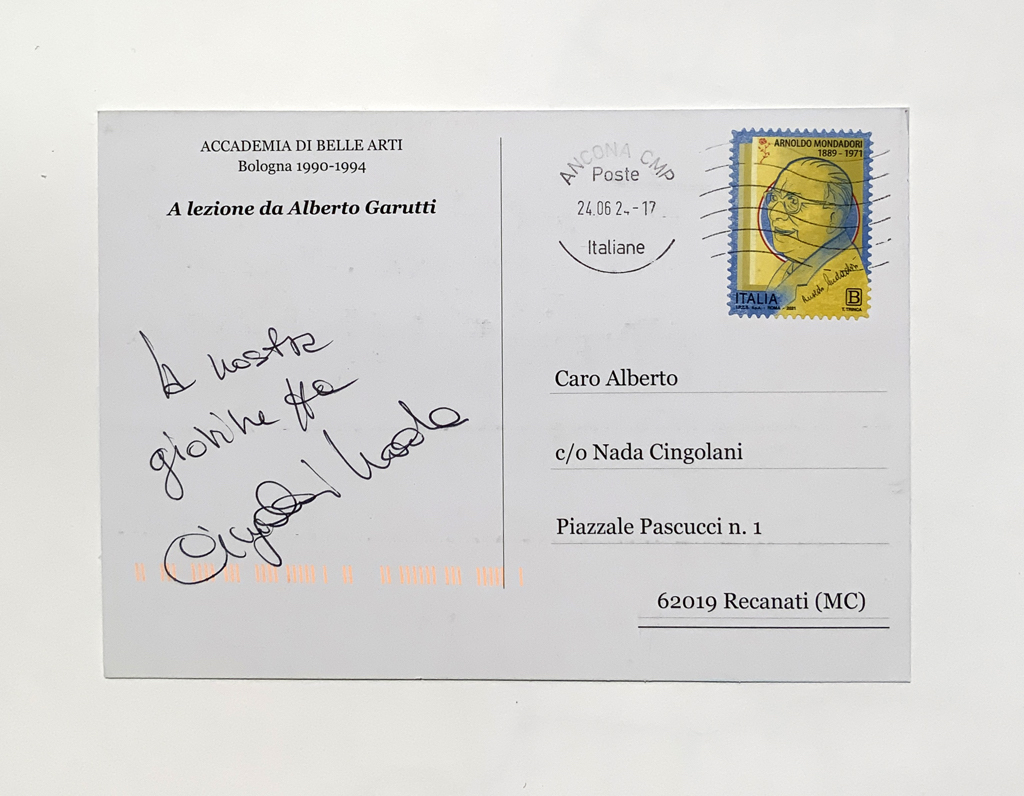 ACCADEMIA DI BELLE ARTI
Bologna 1990-1994
A lezione da Alberto Garutti
la nostra
giovinezza
Cingolani Nada
ANCONA CMP
Poste
24.06 2 -17
Italiane
ARNOLDO MONDADORI
1889 - 1971
Arnoldo Mondadori
ITALIA
B
I.P.Z.S. S.p.A. - ROMA - 2021
T. TRINCA
Caro Alberto
c/o Nada Cingolani
Piazzale Pascucci n. 1
62019 Recanati (MC)